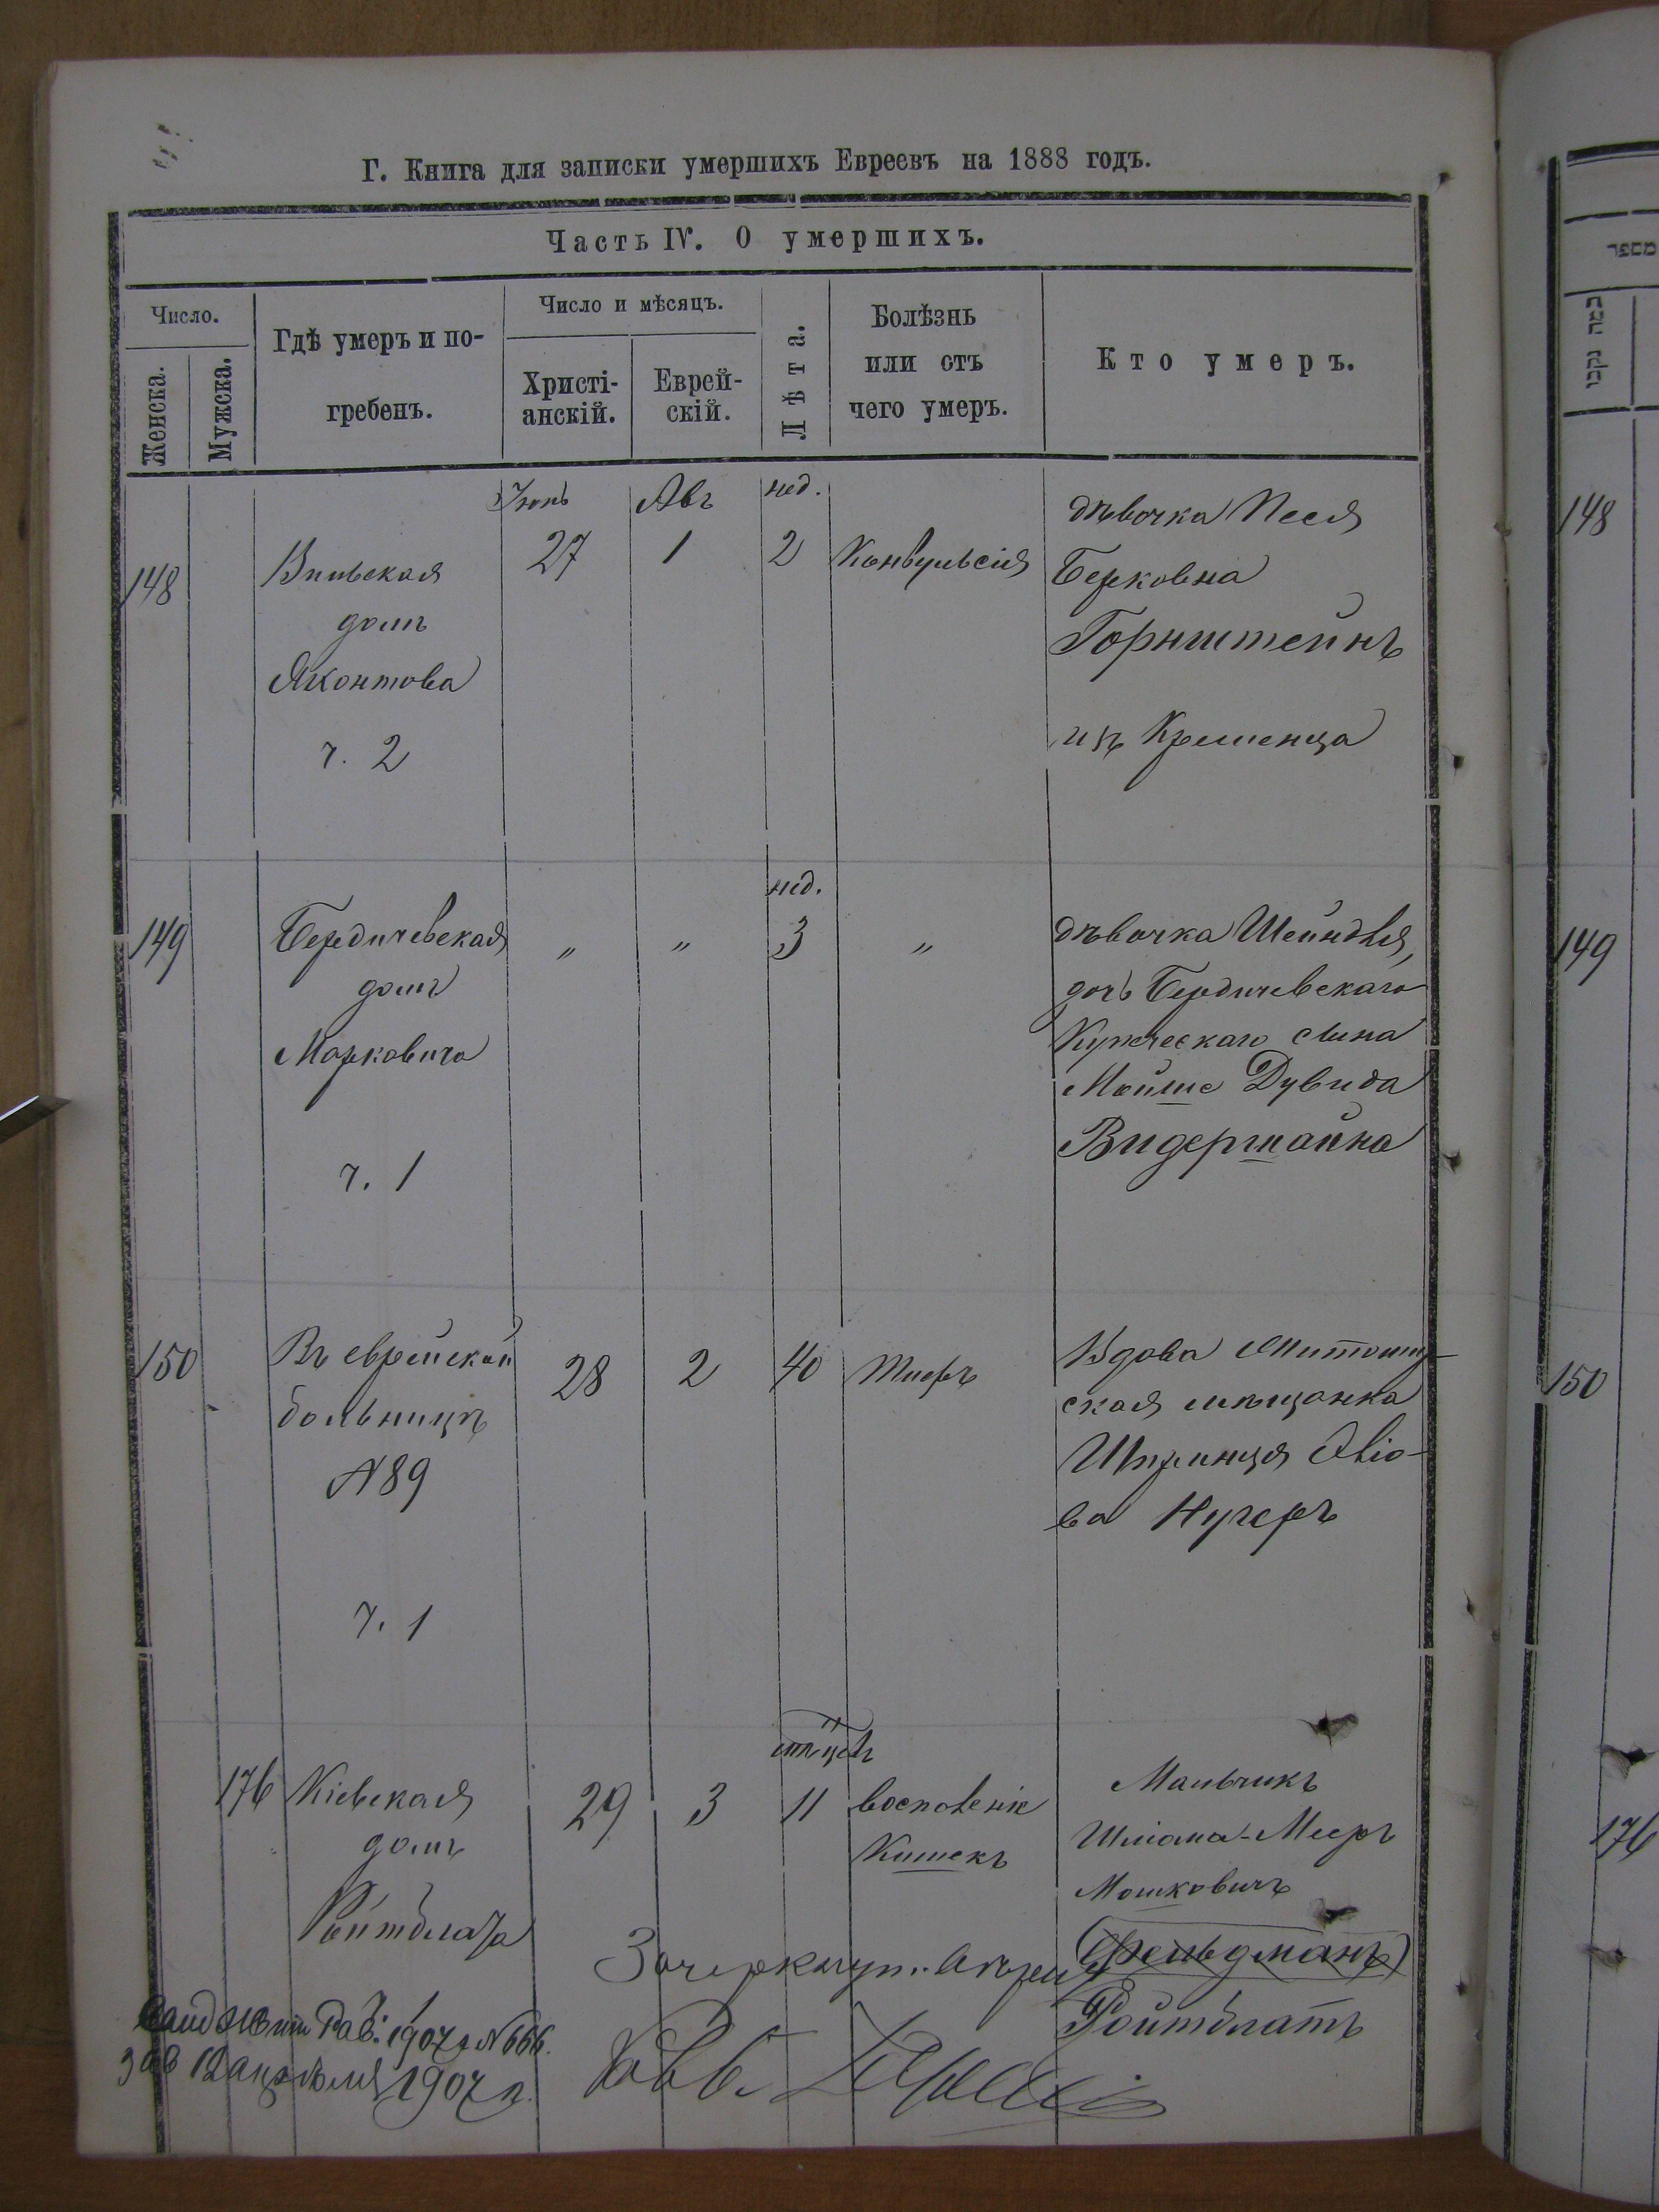 Г. Книга для записки умершихъ Евреевъ на 1888 годъ.
Часть IV. О умершихъ.
Число.
Женска.
Мужска.
Гдѣ умеръ и по-
гребенъ.
Число и мѣсяцъ.
Христі-
анскій.
Еврей-
скій.
Лѣта.
Болѣзнь
или отъ
чего умеръ.
Кто умеръ.
148
Вильская
домъ
Яхонтова
ч. 2
Іюнь
27
Авъ
1
нед.
2
Конвульсія
дѣвочка Песя
Берковна
Горнштейнъ
изъ Кременца
149
Бердичевская
домъ
Марковича
ч. 1
"
"
нед.
3
"
дѣвочка Шейндля,
дочь Бердичевскаго
Купеческаго сына
Мойше Дувида
Видермана
150
Въ еврейской
больницѣ
№89
ч. 1
28
2
40
Тифъ
Вдова Житомир-
ская мѣщанка
Шпринця
ва Кучеръ
176
Кіевская
домъ
Ройтблата
29
3
мѣсяцевъ
11
воспаленіе
Кишекъ
Мальчикъ
Шлiома-Мееръ
Мошковичъ
(Фельдманъ)
Ройтблатъ
Зачеркнут..
Жит Рав: 1907 г №666.
12 апрѣля 1907 г.
Равв.
148
149
150
176